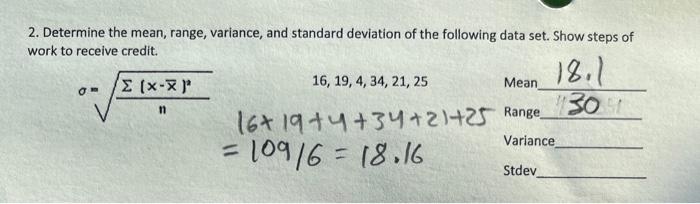 2. Determine the mean, range, variance, and standard deviation of the following data set. Show steps of
work to receive credit.
σ = √ Σ (x-x̄)² / n
16, 19, 4, 34, 21, 25
Mean 18.1
Range 30
Variance
Stdev
16+19+4+34+21+25
= 109/6 = 18.16